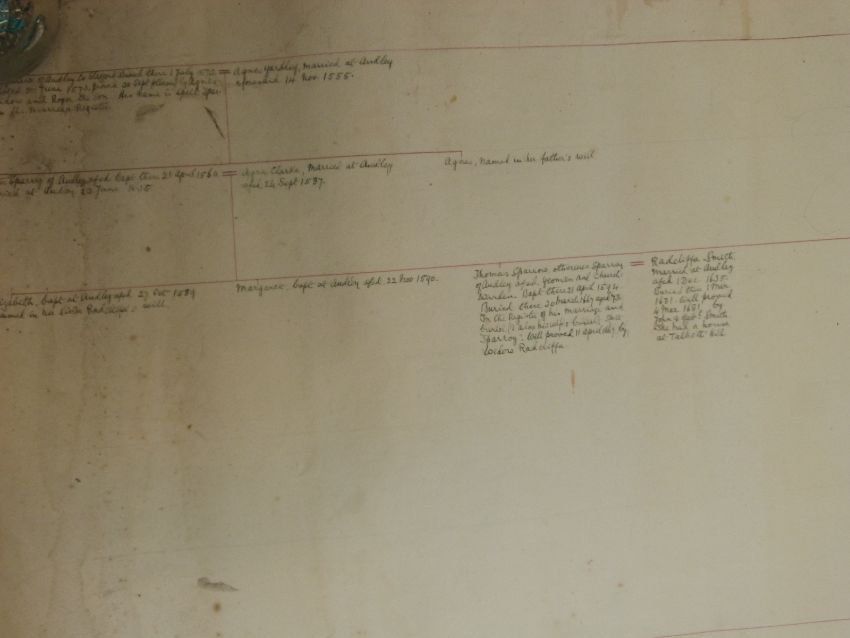 of Audley Co Stafford Buried there 1 July 1572 =
30 June 1573, proved 30 Sept
and Roger the son. His name is spelt
the Marriage Register.
Agnes Yardley, Married at Audley
aforesaid 14 Nov. 1555.
Sparry of Audley afsd Bapt there 21 April 1560 =
at Audley 23 June
Agnes Clarke, Married at Audley
afsd 24 Sept 1587.
Agnes, named in her father's will
Elizabeth, bapt at Audley afsd 27 Oct 1589
named in her sister Radcliffe's will.
Margaret, bapt at Audley afsd 22 Nov 1590.
Thomas Sparrow, otherwise Sparry
of Audley afsd, yeoman and Church
Warden. Bapt there 21 April 1594
Buried there 20 March 1667 aged 73
In the Register of his Marriage and
burial
Sparry. Will proved 11 April 1667 by
widow Radcliffe
=
Radcliffe Smith
Married at Audley
afsd 1 Dec. 1635.
Buried there 1 Mar
1681. Will proved
4 Mar. 1681, by
John & Smith.
She had a house
at Talk o th Hill